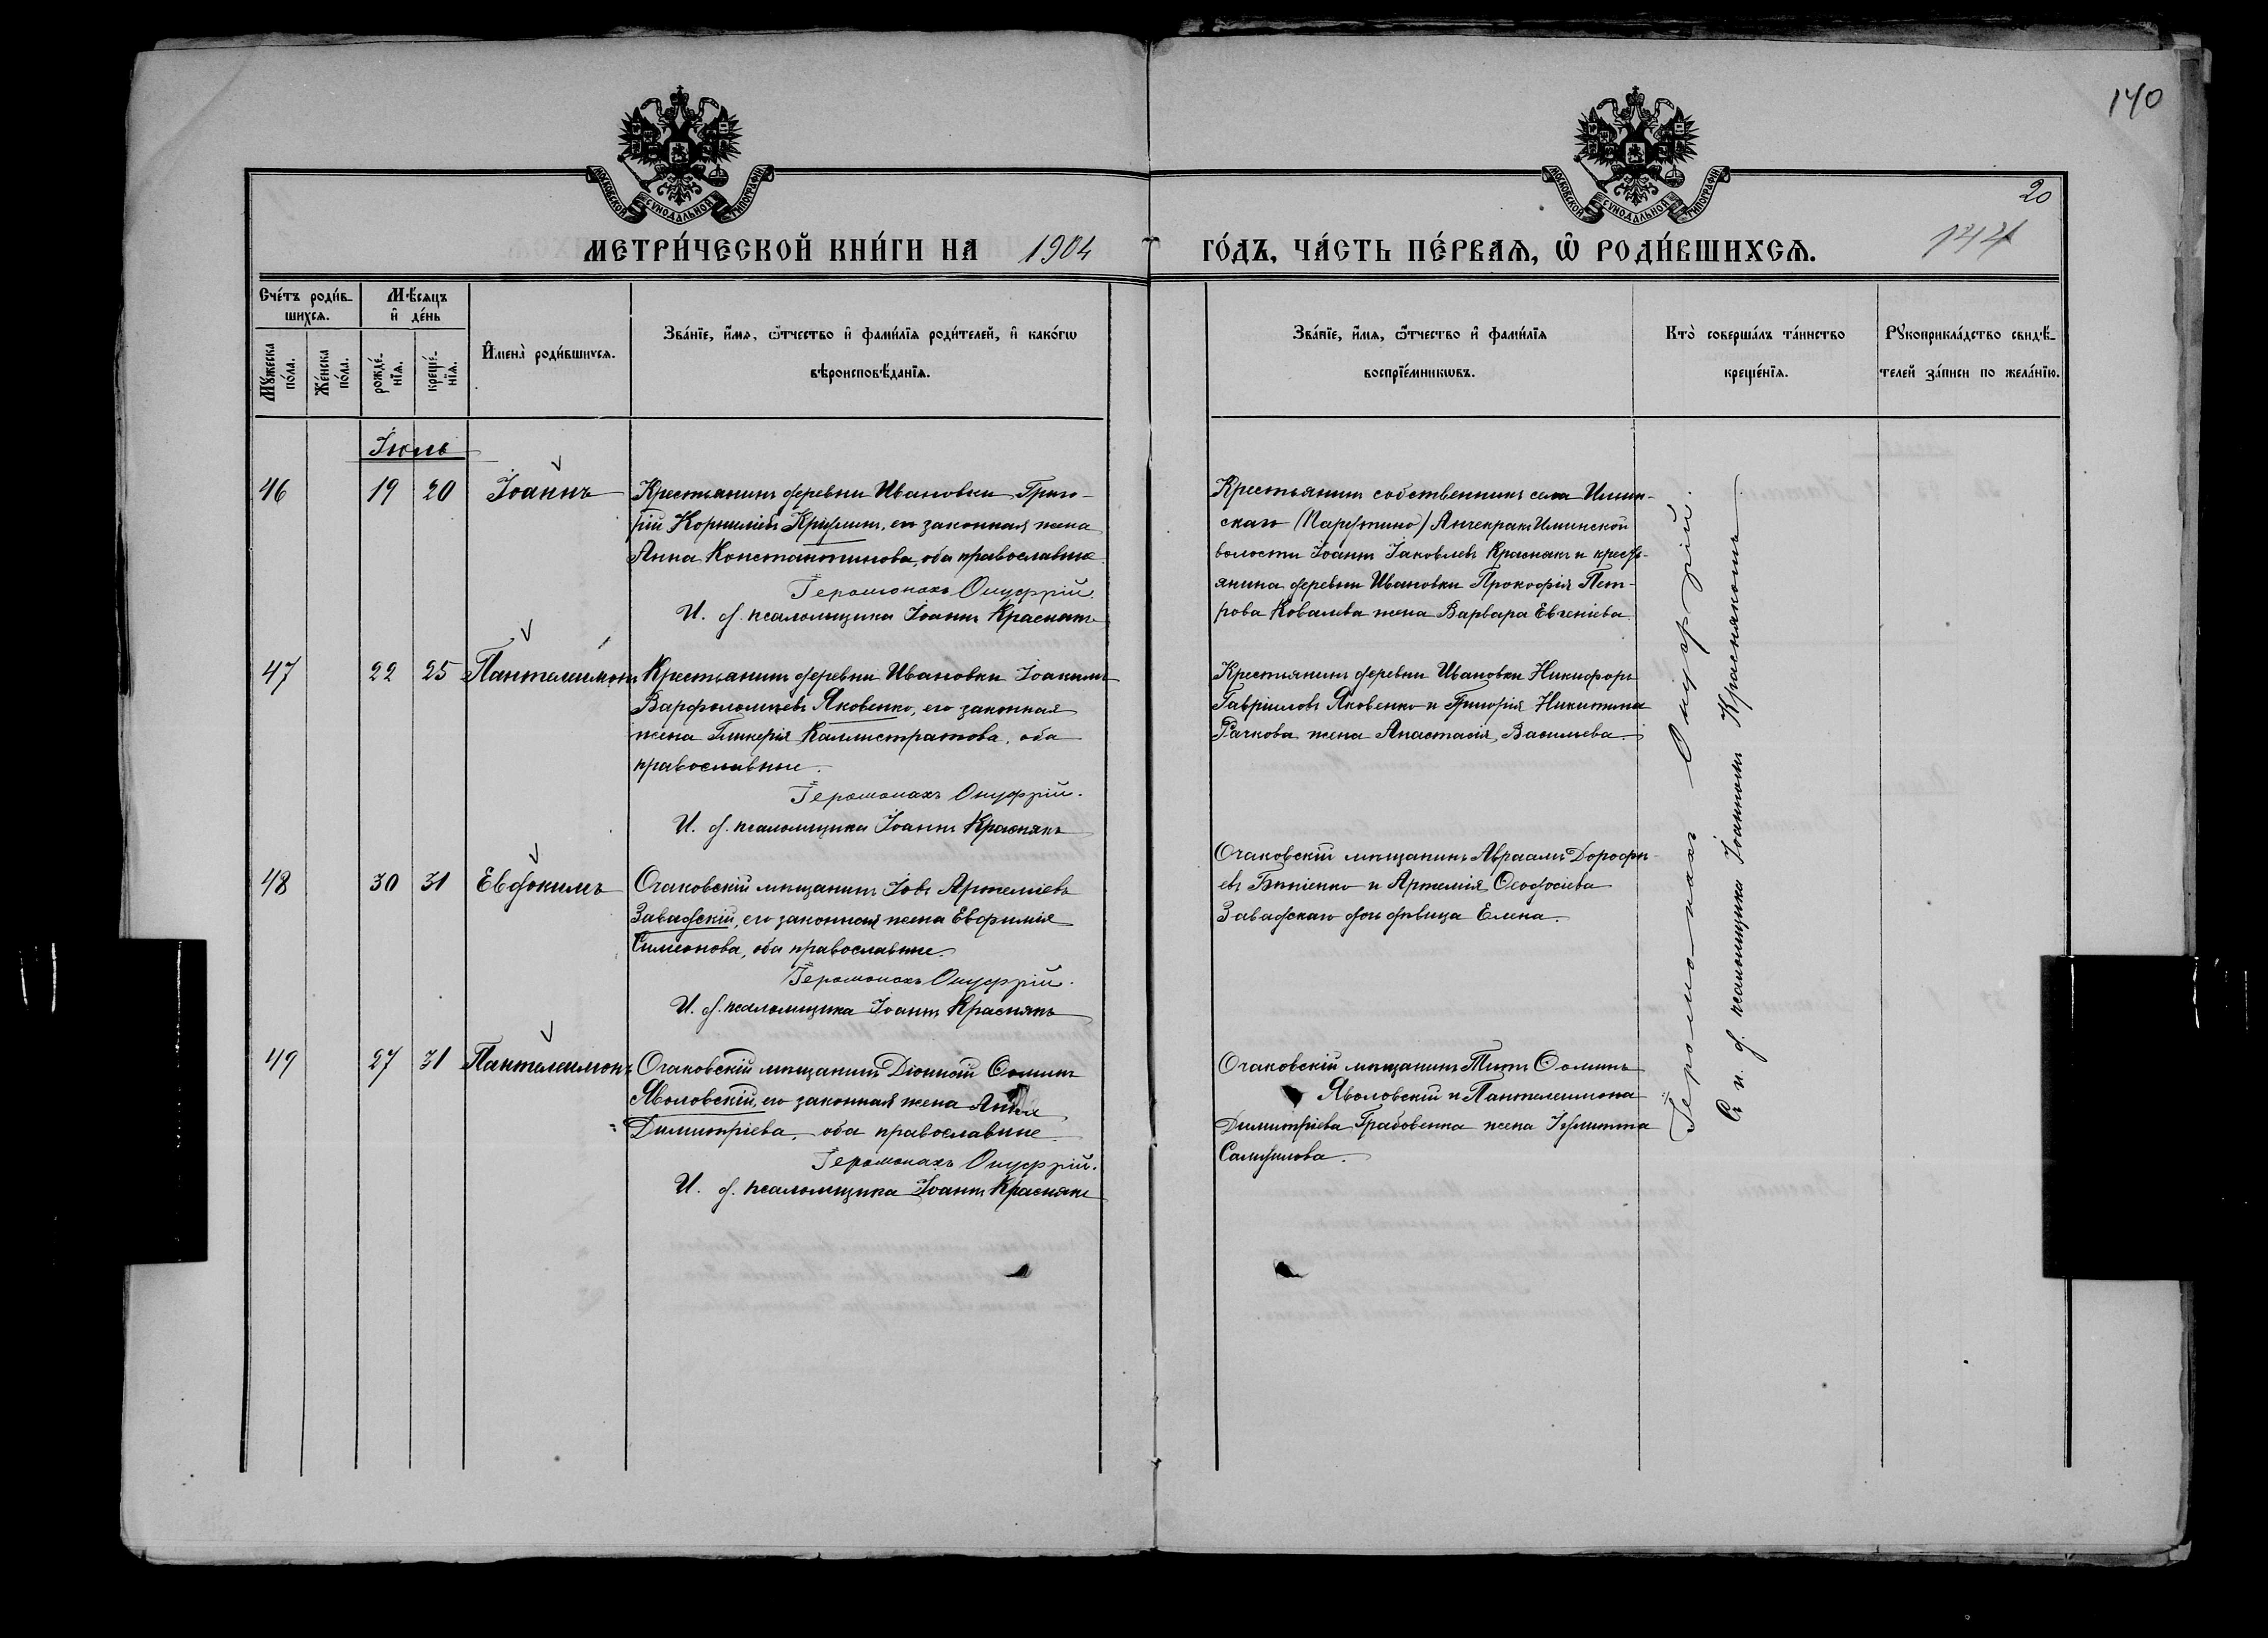 140
20
144
МОСКОВСКОЙ СУНОДАЛЬНОЙ ТИПОГРАФІИ
МОСКОВСКОЙ СУНОДАЛЬНОЙ ТИПОГРАФІИ
МЕТРИ́ЧЕСКОЙ КНИ́ГИ НА 1904 ГО́ДЪ, ЧА́СТЬ ПЕ́РВАѦ, Ѡ РОДИ́ВШИХСѦ.
Сче́тъ роди́в-
шихсѧ.
Мѣ́сѧцъ
и҆ де́нь
Мꙋ́жеска
по́ла.
Же́нска
по́ла.
рожде́-
нїѧ.
креще́-
нїѧ.
И҆мена̀ роди́вшихсѧ.
Зва́нїе, и҆́мѧ, ѻ҆́тчество и҆ фами́лїѧ роди́телей, и҆ како́гѡ
вѣроисповѣ́данїѧ.
Зва́нїе, и҆́мѧ, ѻ҆́тчество и҆ фами́лїѧ
воспрїе́мникѡвъ.
Кто̀ соверша́лъ та́инство
креще́нїѧ.
Рꙋкоприкла́дство свидѣ́-
телей за́писи по жела́нїю.
Іюль
46 19 20 Іоаннъ
Крестьянинъ деревни Ивановки Григо-
рій Корниліевъ его законная жена
Анна Константинова, оба православные
Іеромонахъ Онуфрій.
И. д. псаломщика Іоаннъ Краснякъ
Крестьянинъ собственникъ села Илин-
скаго (Парутино) Анчекракъ Илинской
волости Іоаннъ Іаковлевъ Краснякъ и кресть-
янина деревни Ивановки Прокофія Пет-
рова Ковалева жена Варвара Евгеніева.
47 22 25 Пантелеимонъ
Крестьянинъ деревни Ивановки Іоакимъ
Варфоломеевъ Яковенко, его законная
жена Гликерія Каллистратова, оба
православные.
Іеромонахъ Онуфрій.
И. д. псаломщика Іоаннъ Краснякъ
Крестьянинъ деревни Ивановки Никифоръ
Гавріиловъ Яковенко и Григорія Никитина
Рачкова жена Анастасія Васильева.
48 30 31 Евдокимъ
Очаковскій мѣщанинъ Іовъ Артеміевъ
Завадскій, его законная жена Евфимія
Симеонова, оба православные.
Іеромонахъ Онуфрій.
И. д. псаломщика Іоаннъ Краснякъ
Очаковскій мѣщанинъ Авраамъ Дорофѣ-
евъ и Артемія Ѳеодосіева
Завадскаго дочь дѣвица Елена.
49 27 31 Пантелеимонъ
Очаковскій мѣщанинъ Діонисій Ѳоминъ
Яволовскій, его законная жена Анна
Димитріева, оба православные.
Іеромонахъ Онуфрій.
И. д. псаломщика Іоаннъ Краснякъ
Очаковскій мѣщанинъ Титъ Ѳоминъ
Яволовскій и Пантелеимона
Димитріева Грабовенка жена Іулитта
Самуилова.
Іеромонахъ Онуфрій.
Съ и. д. псаломщика Іоанномъ Краснякомъ